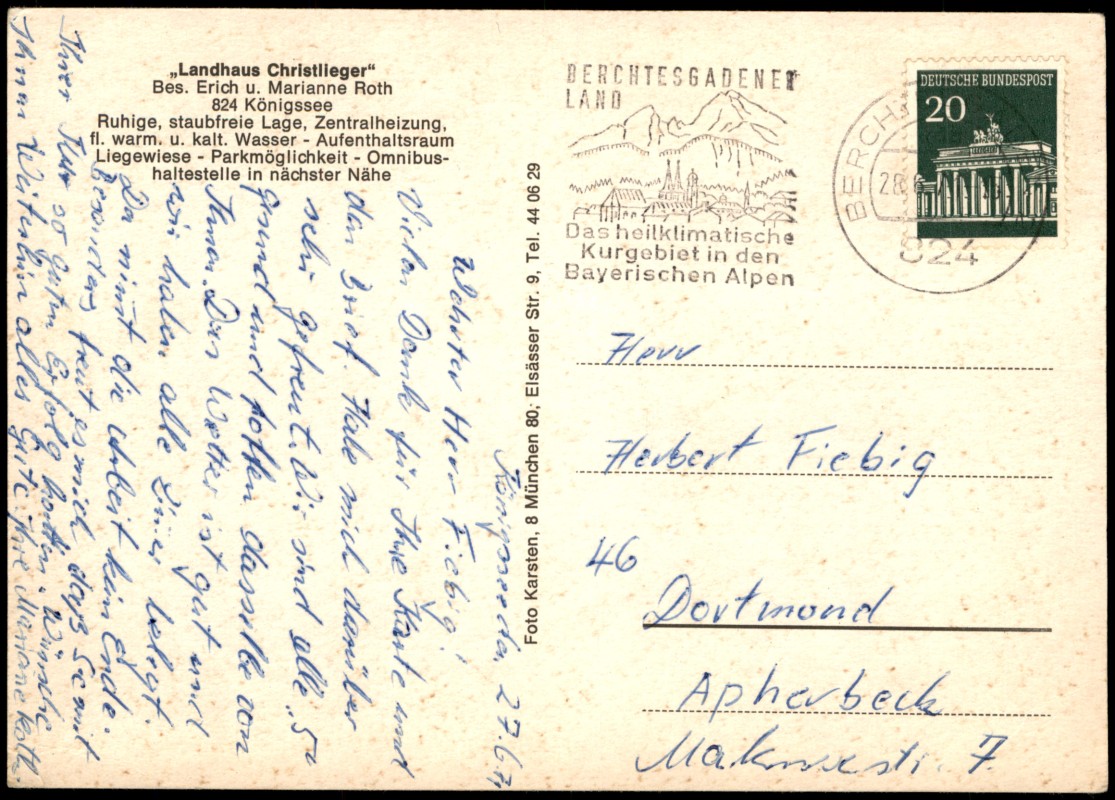 „Landhaus Christlieger“
Bes. Erich u. Marianne Roth
824 Königssee
Ruhige, staubfreie Lage, Zentralheizung,
fl. warm. u. kalt. Wasser - Aufenthaltsraum
Liegewiese - Parkmöglichkeit - Omnibus-
haltestelle in nächster Nähe
Königssee den 27.6.
Werter Herr Fiebig!
Vielen Dank für Ihre Karte und
den Brief. Habe mich darüber
sehr gefreut. Wir sind alle
gesund und hoffen dasselbe von
Ihnen. Das Wetter ist gut und
wir haben alle Zimer belegt.
Da nimmt die Arbeit kein Ende.
Besonders freut es mich das Sie mit
Ihrer Kur so guten Erfolg hatten. Wünsche
Ihnen Weiterhin alles Gute Ihre Mariane Roth.
Foto Karsten, 8 München 80; Elsässer Str. 9, Tel. 44 06 29
BERCHTESGADENER
LAND
Das heilklimatische
Kurgebiet in den
Bayerischen Alpen
BERCH
28.6
824
DEUTSCHE BUNDESPOST
20
Herr
Herbert Fiebig
46
Dortmund
Apherbeck
7.